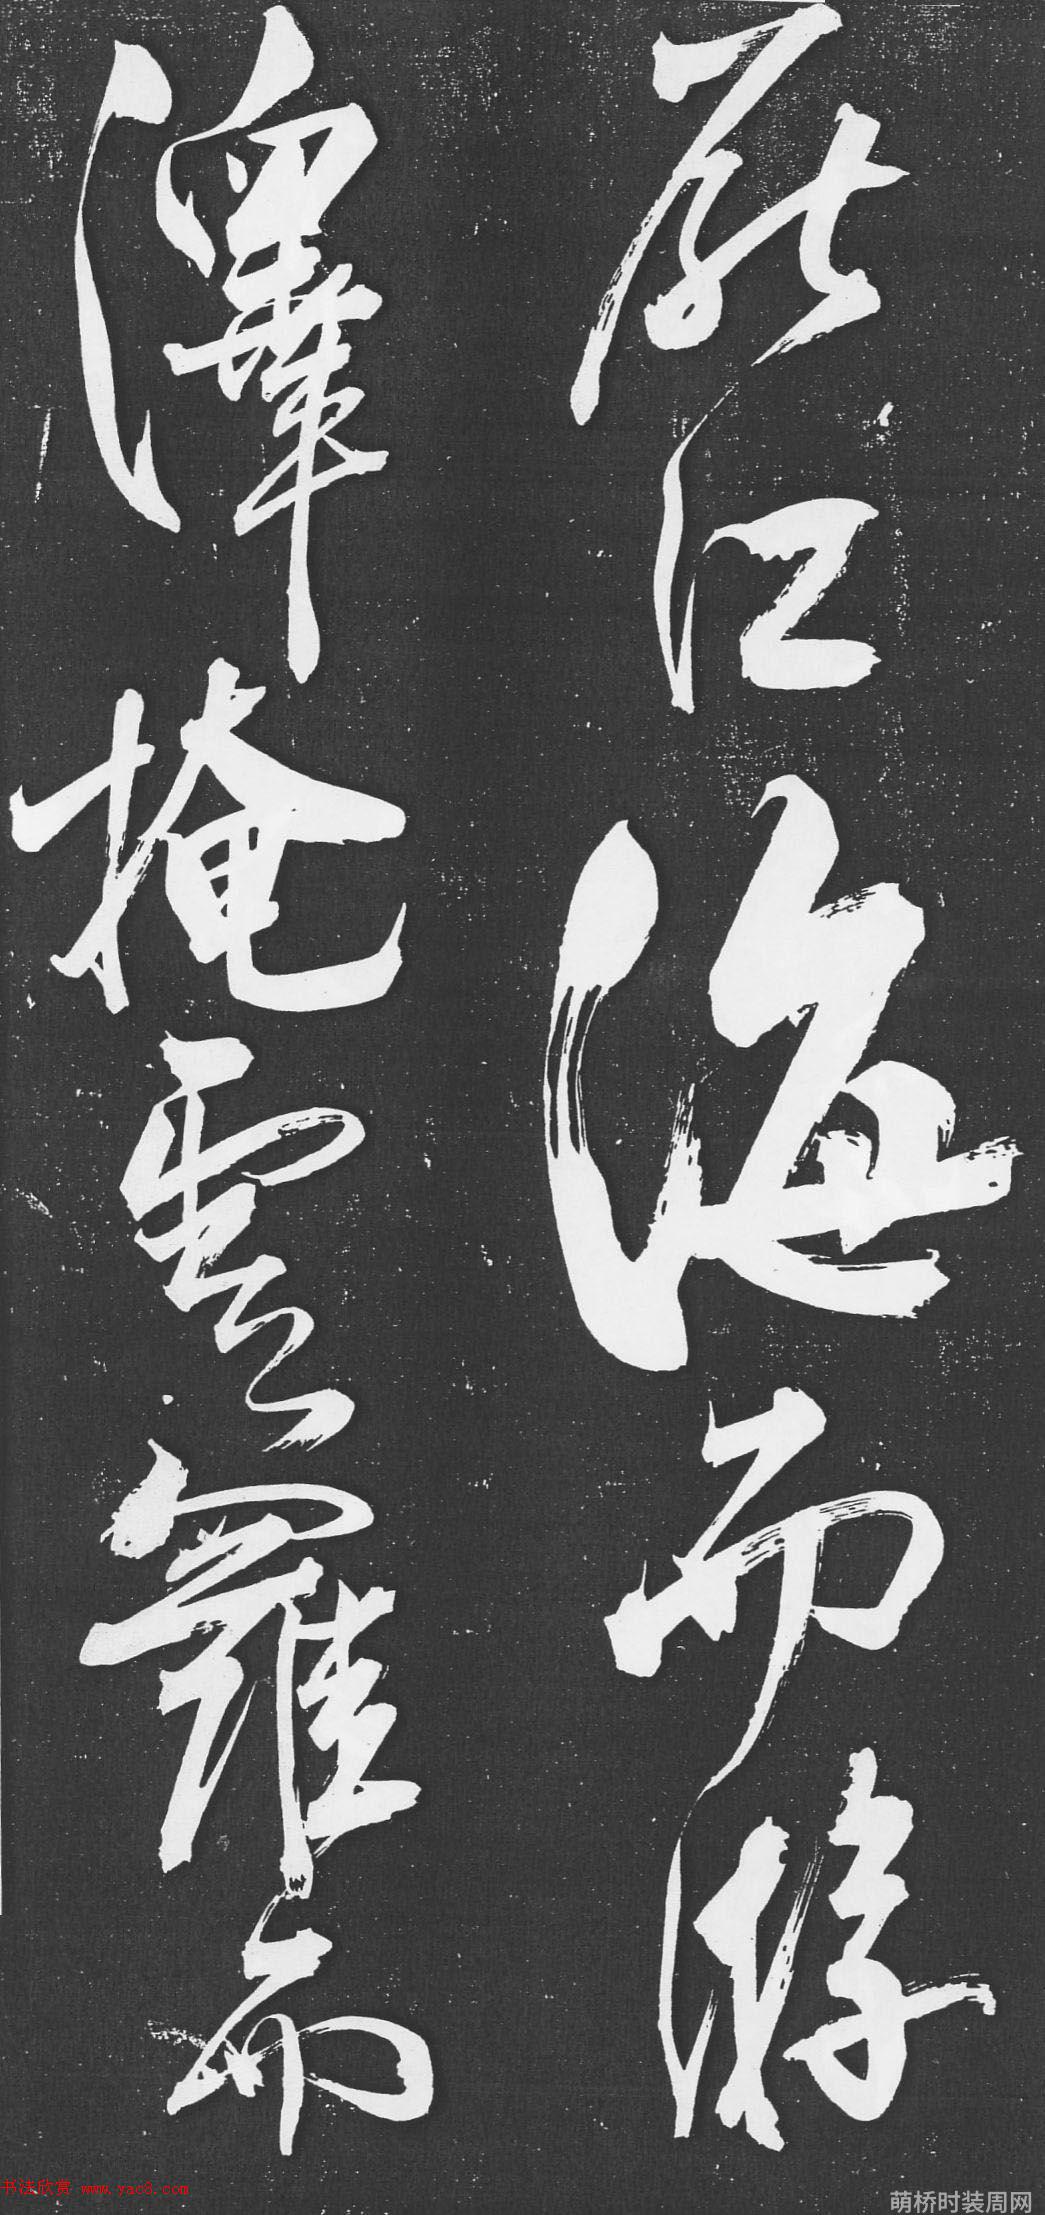 厭江海而游
澤掩雲羅而
书法欣赏 www.yac8.com
萌桥时装周网